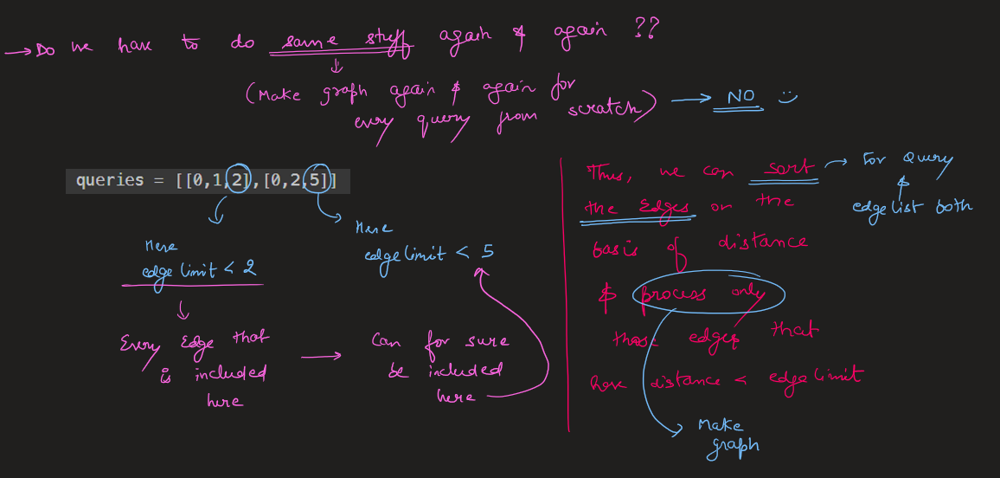 → Do we have to do same stuff again & again ??
(Make graph again & again for
every query from scratch) → NO :)
queries = [[0,1,2],[0,2,5]]
Here
edgelimit < 2
Here
edgelimit < 5
Every Edge that
is included
here
Can for sure
be included
here
Thus, we can sort
the Edges on the
basis of distance
& process only
those edges that
have distance < edgelimit
→ For Query
&
edgelist both
Make
graph